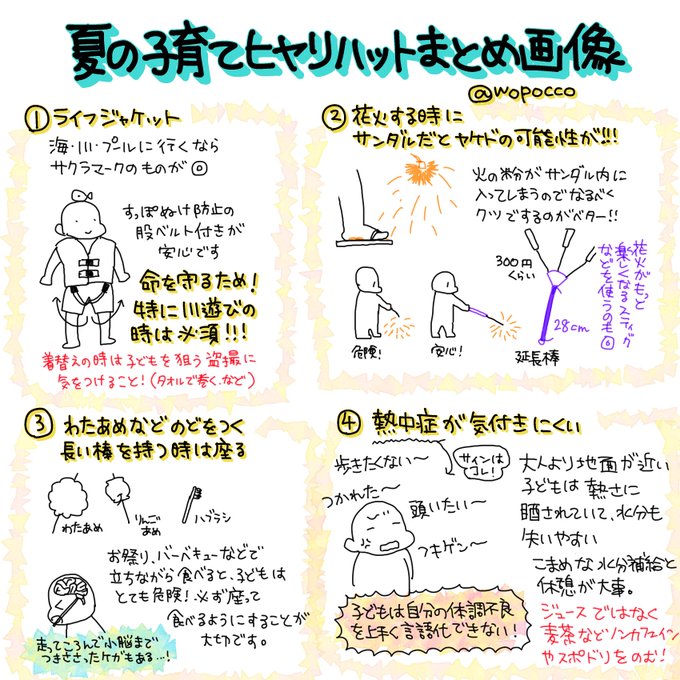 夏の子育てヒヤリハットまとめ画像
@wopocco
①ライフジャケット
海・川・プールに行くなら
サクラマークのものが◎
すっぽぬけ防止の
股ベルト付きが
安心です
命を守るため!
特に川遊びの
時は必須!!!
着替えの時は子どもを狙う盗撮に
気をつけること!(タオルで巻く、など)
②花火する時に
サンダルだとヤケドの可能性が!!!
火の粉がサンダル内に
入ってしまうのでなるべく
クツでするのがベター!!
危険!
安心!
300円
くらい
28cm
延長棒
花火がもっと
楽しくなるスティック
などを使うのも◎
③わたあめなどのどをつく
長い棒を持つ時は座る
わたあめ
りんご
あめ
ハブラシ
お祭り、バーベキューなどで
立ちながら食べると、子どもは
とても危険!必ず座って
食べるようにすることが
大切です。
走ってころんで小脳まで
つきささったケガもある…!
④熱中症が気付きにくい
歩きたくない〜
サインは
コレ!
つかれた〜
頭いたい〜
フキゲン〜
大人より地面が近い
子どもは熱さに
晒されていて、水分も
失いやすい
こまめな水分補給と
休憩が大事。
子どもは自分の体調不良
を上手く言語化できない!
ジュースではなく
麦茶などノンカフェイン
やスポドリをのむ!